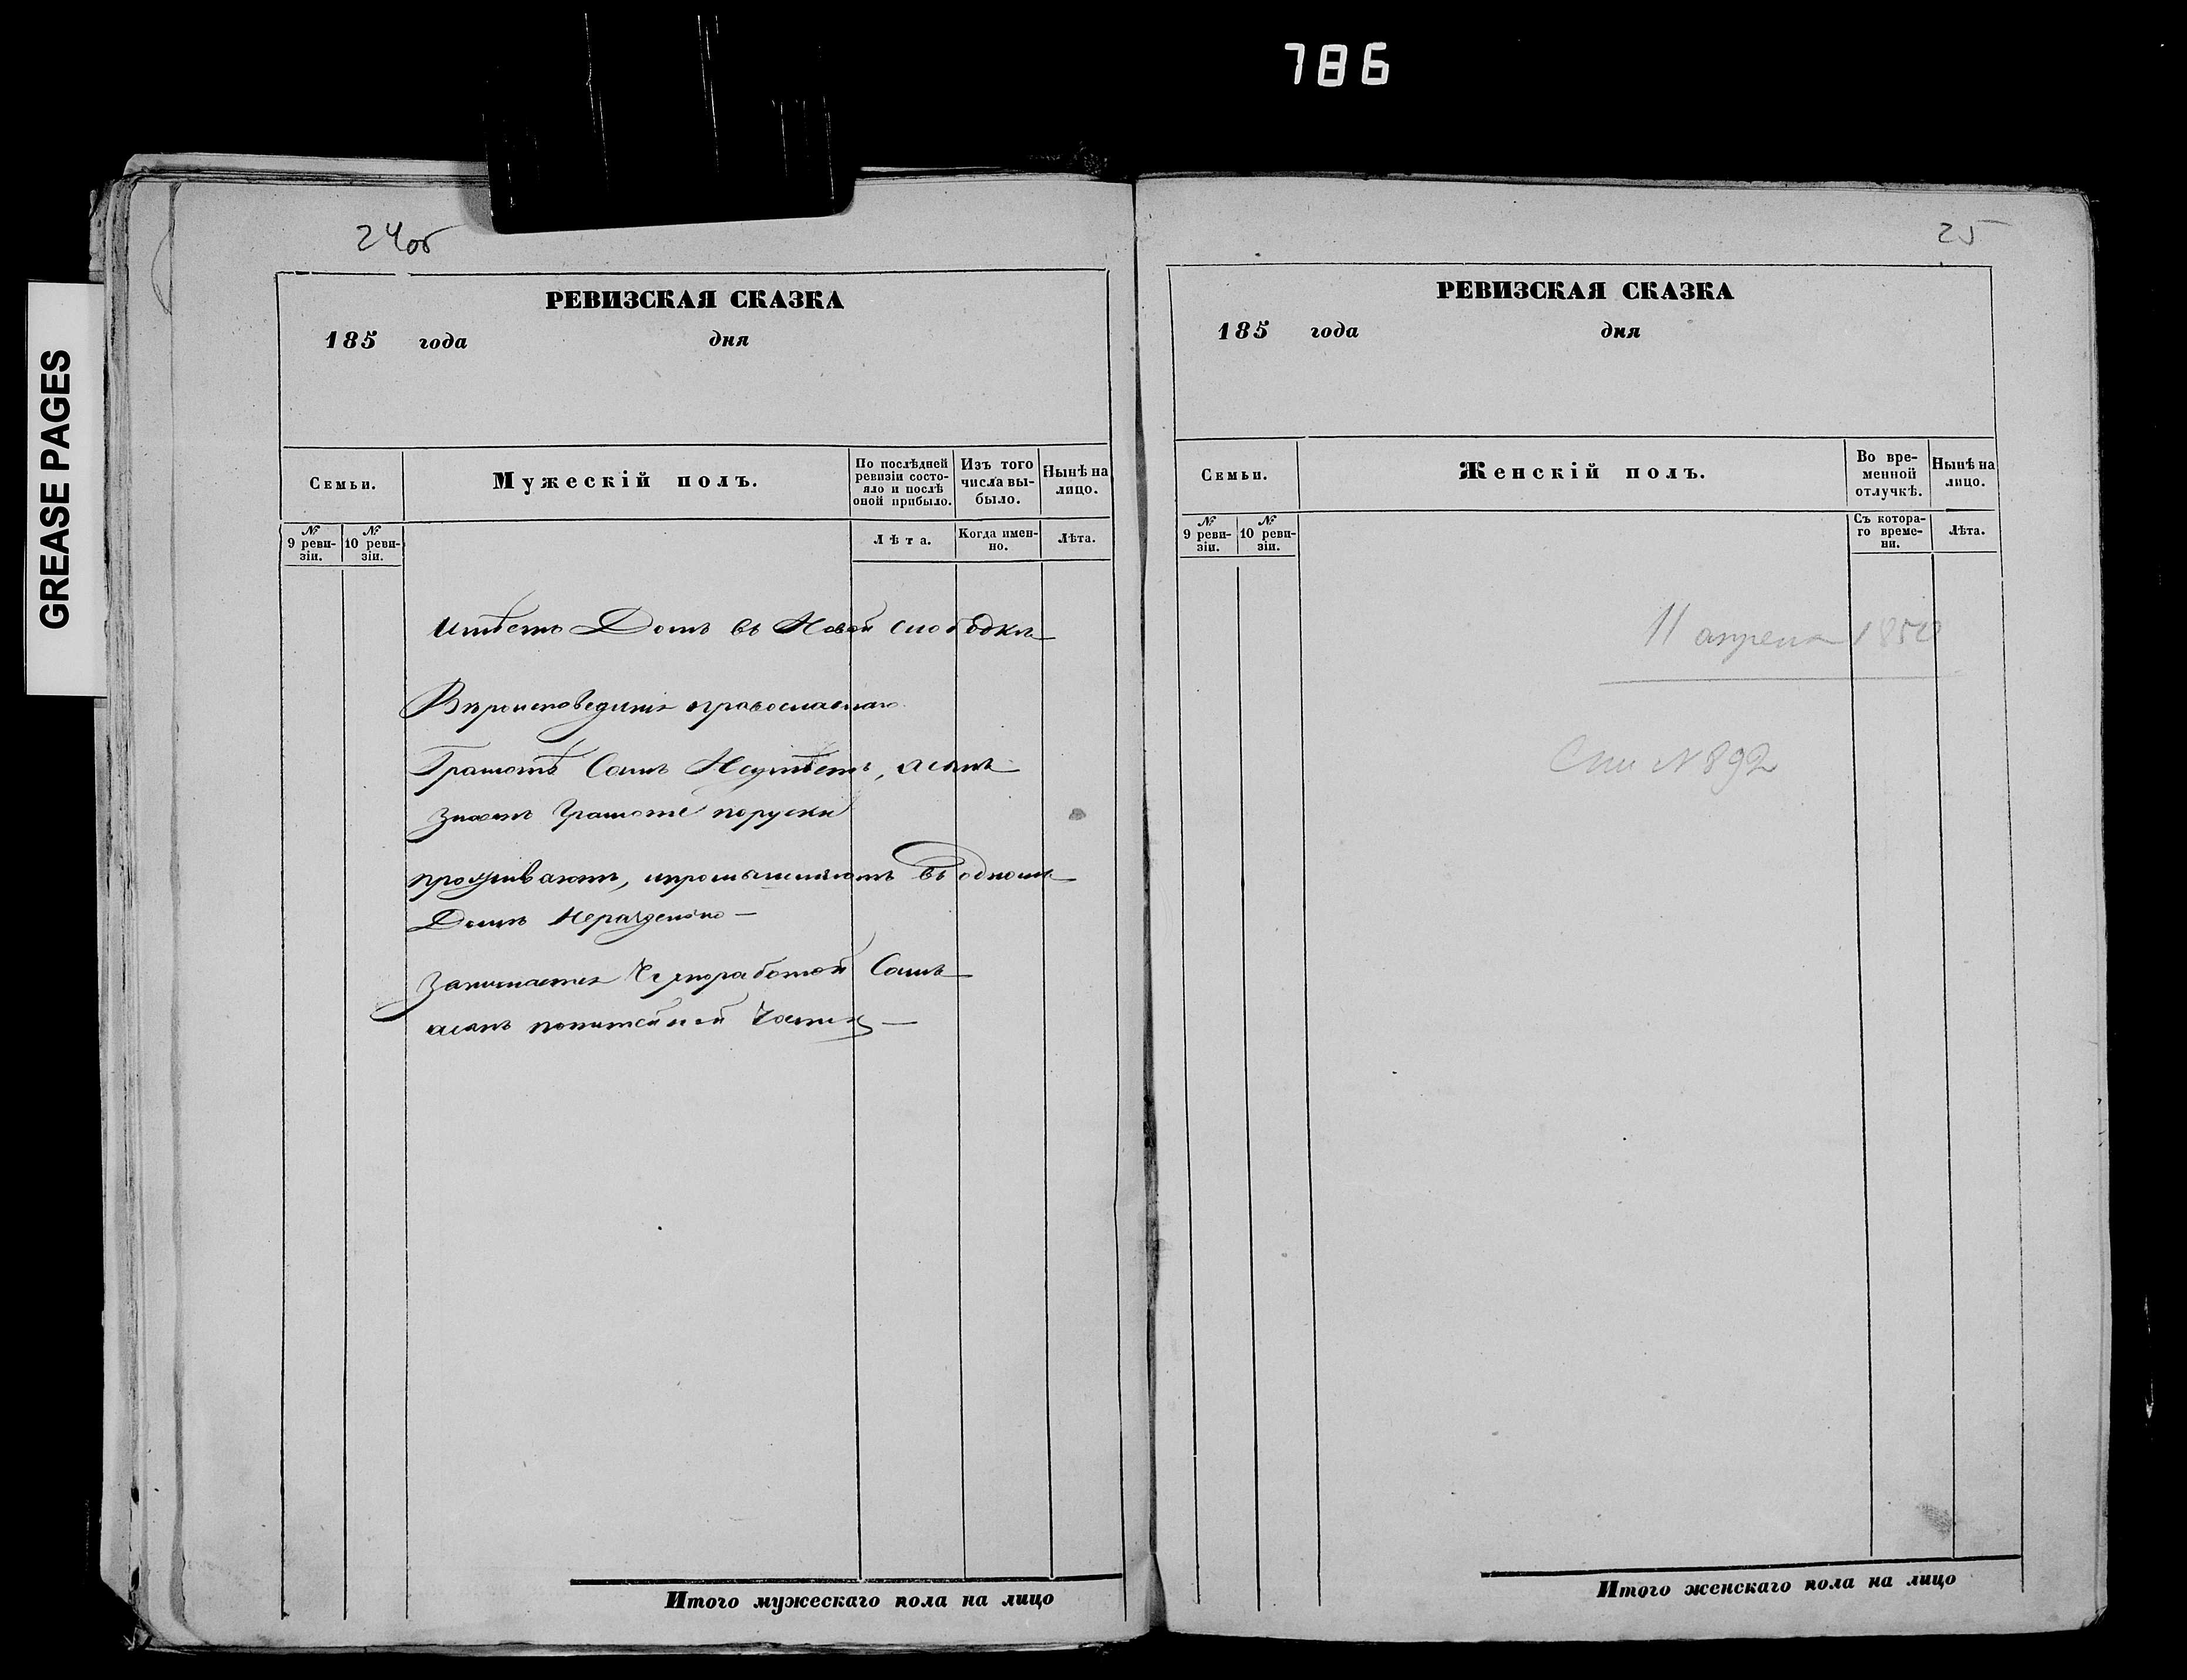 786
GREASE PAGES
24об
РЕВИЗСКАЯ СКАЗКА
185 года дня
Семьи.
Мужескій полъ.
По послѣдней ревизіи состояло и послѣ оной прибыло.
Изъ того числа выбыло.
Нынѣ на лицо.
№ 9 ревизіи.
№ 10 ревизіи.
Лѣта.
Когда именно.
Лѣта.
Имѣетъ Домъ въ Новой слободкѣ
Вѣроисповеданія православнаго
Грамотѣ Самъ Неумѣетъ, а сынъ
знаетъ Грамоте поруски
проживаютъ, и въ одномъ
Домѣ Нераздельно —
Занимается Самъ
а сынъ питейной Части —
Итого мужескаго пола на лицо
25
РЕВИЗСКАЯ СКАЗКА
185 года дня
Семьи.
Женскій полъ.
Во временной отлучкѣ.
Нынѣ на лицо.
№ 9 ревизіи.
№ 10 ревизіи.
Съ котораго времени.
Лѣта.
11 апреля
№ 892
Итого женскаго пола на лицо